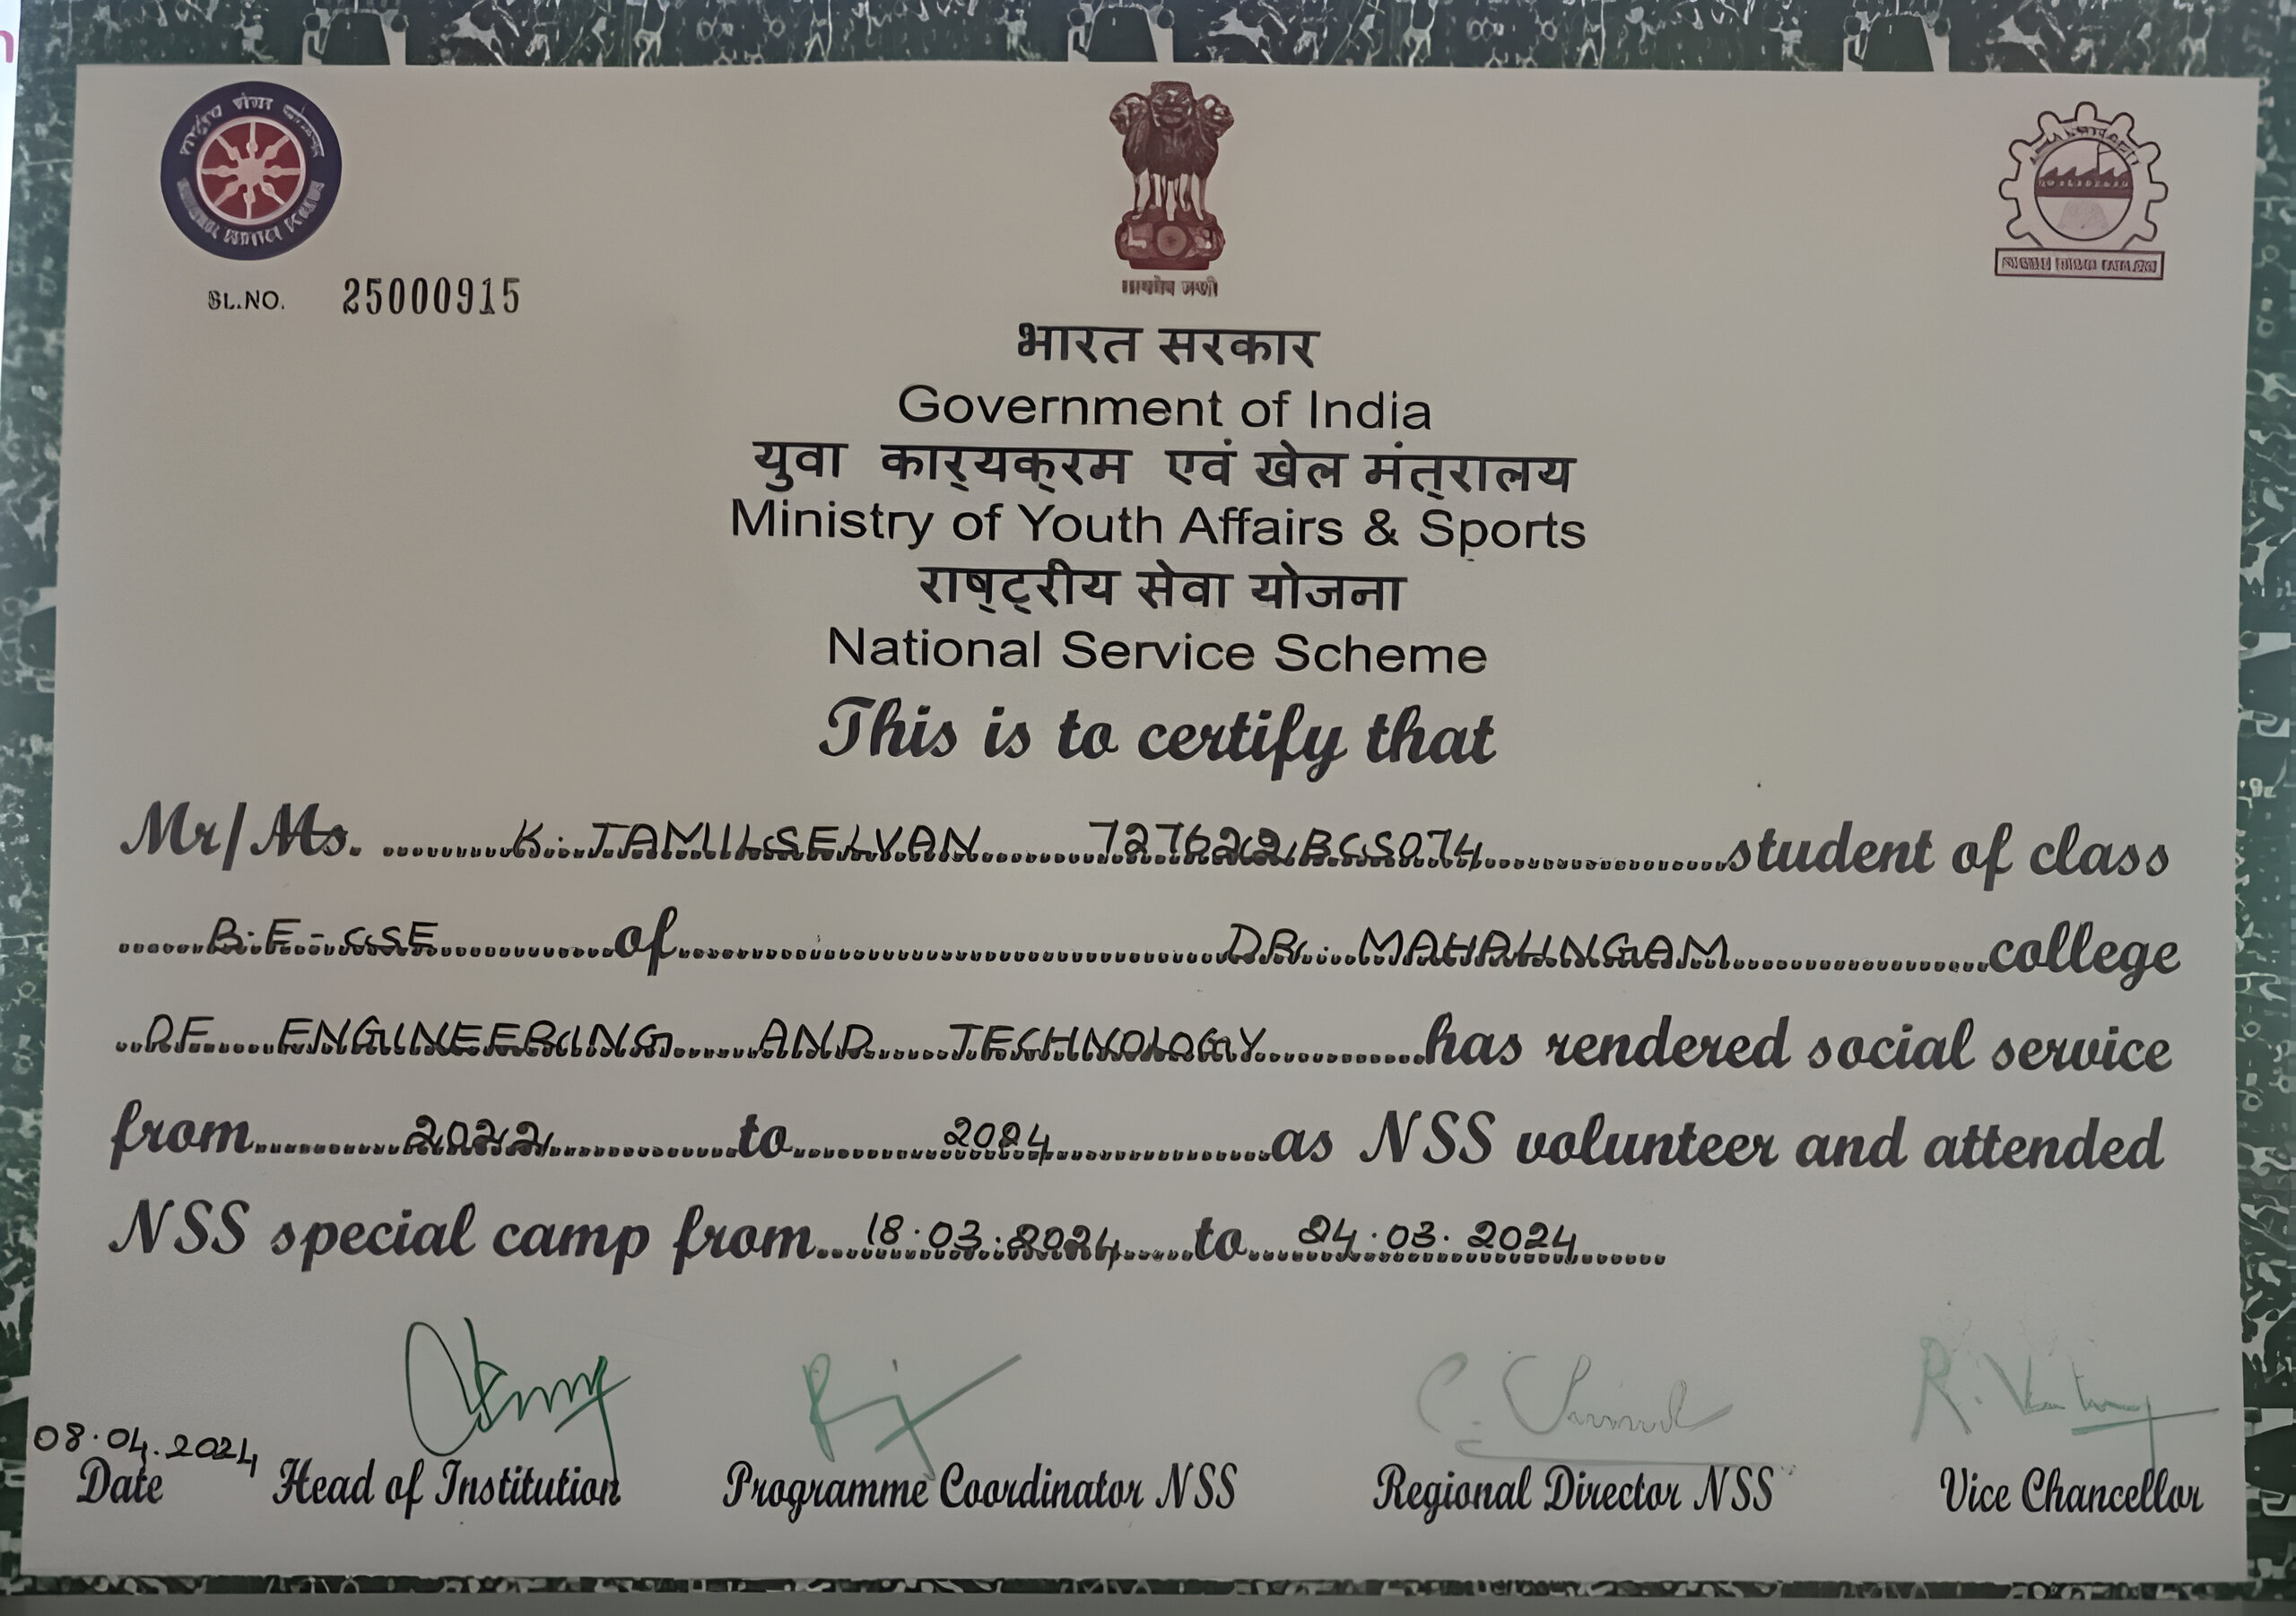 SL.NO. 25000915
भारत सरकार
Government of India
युवा कार्‌यक्‌रम एवं खेल मंत्‌रालय
Ministry of Youth Affairs & Sports
राष्‌ट्‌रीय सेवा योजना
National Service Scheme
This is to certify that
Mr/Ms. K. TAMILSELVAN 727622BCS074 student of class
B.E - CSE of DR. MAHALINGAM college
OF ENGINEERING AND TECHNOLOGY has rendered social service
from 2022 to 2024 as NSS volunteer and attended
NSS special camp from 18.03.2024 to 24.03.2024
08.04.2024
Date Head of Institution Programme Coordinator NSS Regional Director NSS Vice Chancellor